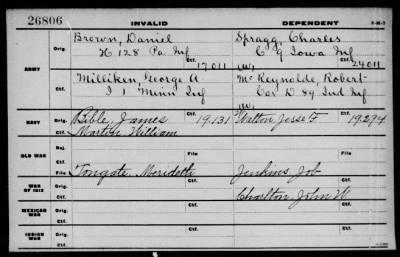 26806
INVALID
DEPENDENT
3-M-3
ARMY
Orig.
Brown, Daniel
H 128 Pa Inf
Ctf.
17011
Spragg, Charles
C 9 Iowa Inf
W.
Ctf.
24011
Orig.
Milliken, George A
I 1 Minn Inf
Ctf.
McReynolds, Robert
Cor D 89 Ind Inf
W.
Ctf.
NAVY
Orig.
Bible, James
19,131
Walton Jesse F
19294
Ctf.
Martin William
OLD WAR
Rej.
Ctf.
File
File
WAR OF 1812
File
Tongate, Merideth
Jenkins, Job
Orig.
Charlton, John W.
Ctf.
MEXICAN WAR
Orig.
Ctf.
INDIAN WAR
Orig.
Ctf.